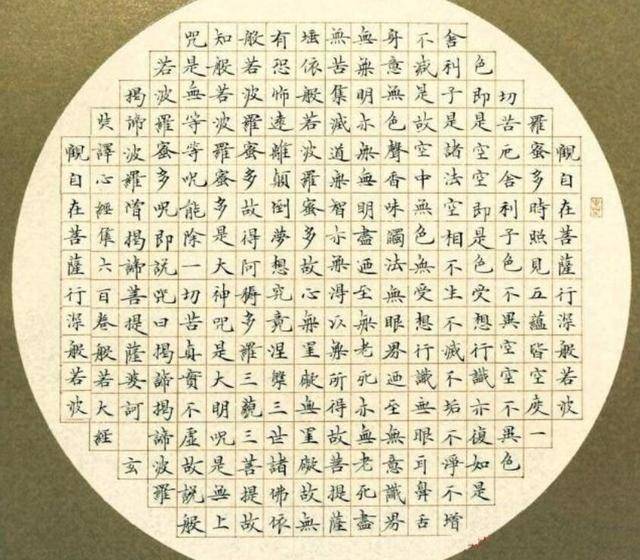 觀自在菩薩行深般若波
羅蜜多時照見五蘊皆空度一
切苦厄舍利子色不異空空不異色
色即是空空即是色受想行識亦復如是
舍利子是諸法空相不生不滅不垢不淨不增
不減是故空中無色無受想行識無眼耳鼻舌
身意無色聲香味觸法無眼界迺至無意識界
無無明亦無無明盡迺至無老死亦無老死盡
無苦集滅道無智亦無得以無所得故菩提薩
埵依般若波羅蜜多故心無罣礙無罣礙故無
有恐怖遠離顛倒夢想究竟涅槃三世諸佛依
般若波羅蜜多故得阿耨多羅三藐三菩提故
知般若波羅蜜多是大神咒是大明咒是無上
咒是無等等咒能除一切苦真實不虛故說般
若波羅蜜多咒即說咒曰揭諦揭諦波羅
揭諦波羅僧揭諦菩提薩婆訶 玄
奘譯心經集六百卷般若大經
觀自在菩薩行深般若波